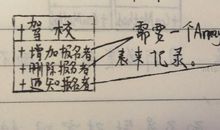 +驾校
+增加报名者
+删除报名者
+通知报名者
需要一个Array
表来记录。